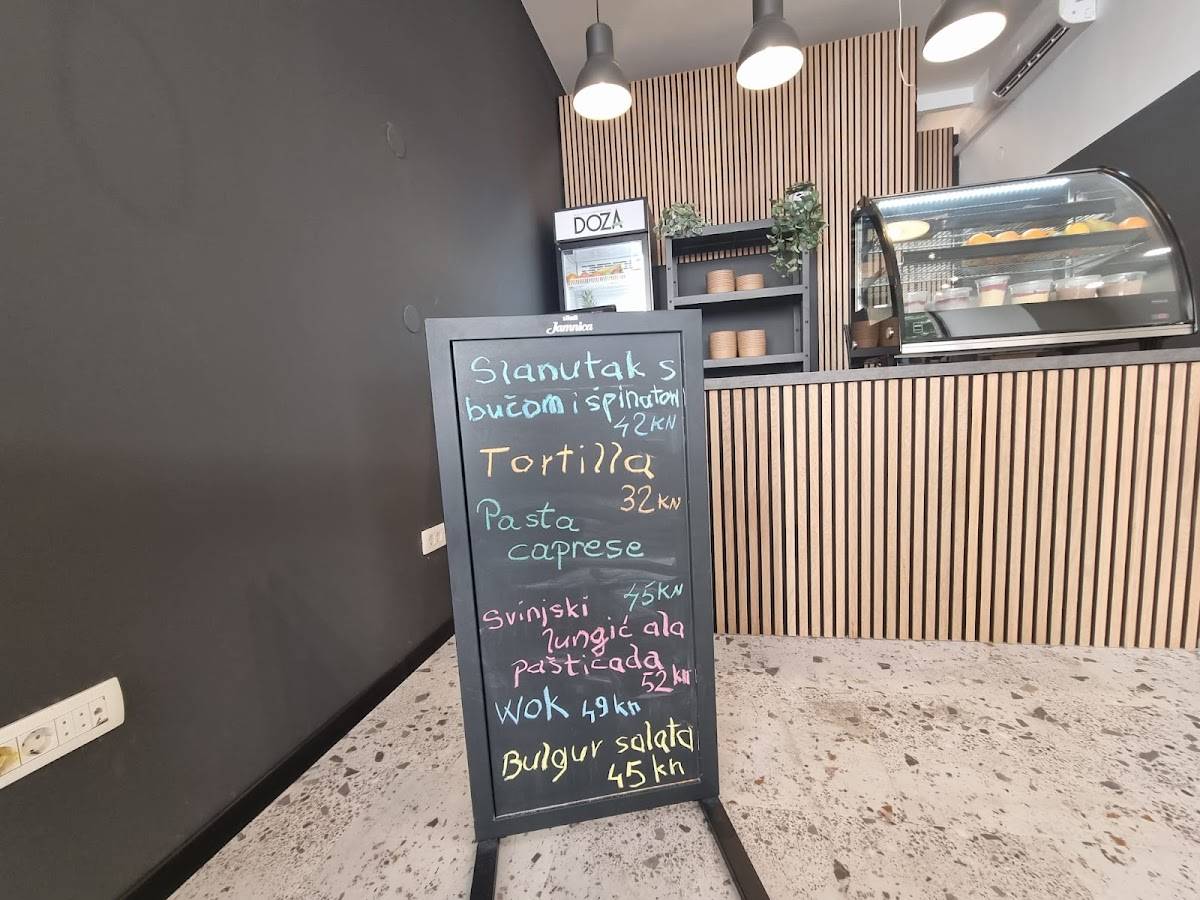 DOZA
Jamnica
Slanutak s
bučom i špinatom
42KN
Tortilla
32KN
Pasta
caprese
45KN
Svinjski
lungić ala
pašticada
52kn
Wok 49kn
Bulgur salata
45kn